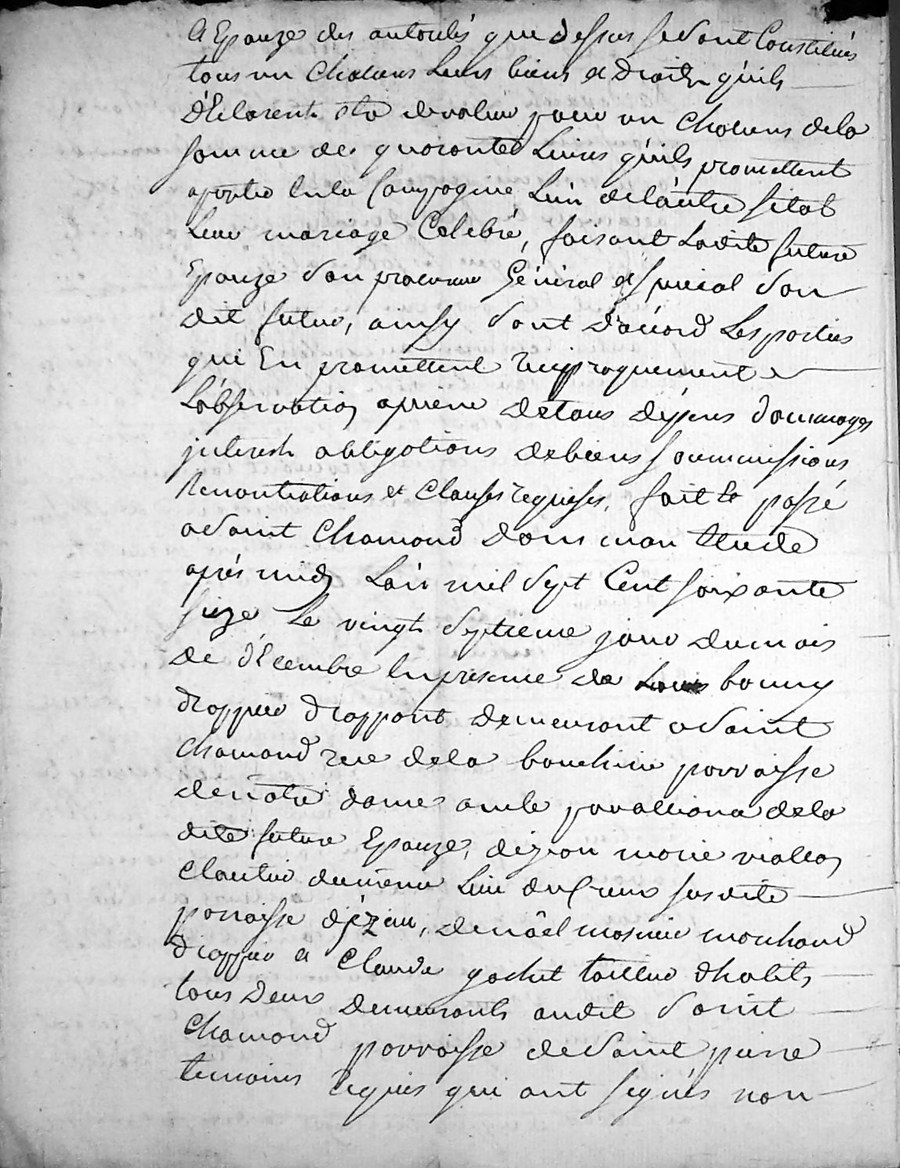 & Epouze des autorités que dessus se sont Constitués
tous un Chacuns leurs biens et droits qu'ils
déclarent être de valeur pour un Chacuns de la
somme de quarante Livres qu'ils promettent
aporter en la Compagnie L'un de l'autre sitot
Leur mariage Celebré, faisant Ladite future
Epouze son procureur Général et spécial son
dit futur, ainsy sont d'acord Les parties
qui En promettent reciproquement
L'observation a peine de tous dépens dommages
interests obligations de biens soummissions
Renontiations et Clauses requises, fait et passé
a Saint Chamond dans mon Etude
après midy L'an mil Sept Cent soixante
seize Le vingt Septieme jour du mois
de décembre En présence de Louis bonny
drappier drappant demeurant a Saint
Chamond rue de la boucherie parroisse
de notre dame oncle de la
dite future Epouze, de jean marie
du même Lieu susdite
parroisse d'jzieu, de noël marchand
drappier & Claude tailleur d'habits
tous deux demeurants audit Saint
Chamond parroisse de Saint pierre
temoins requis qui ont signés non